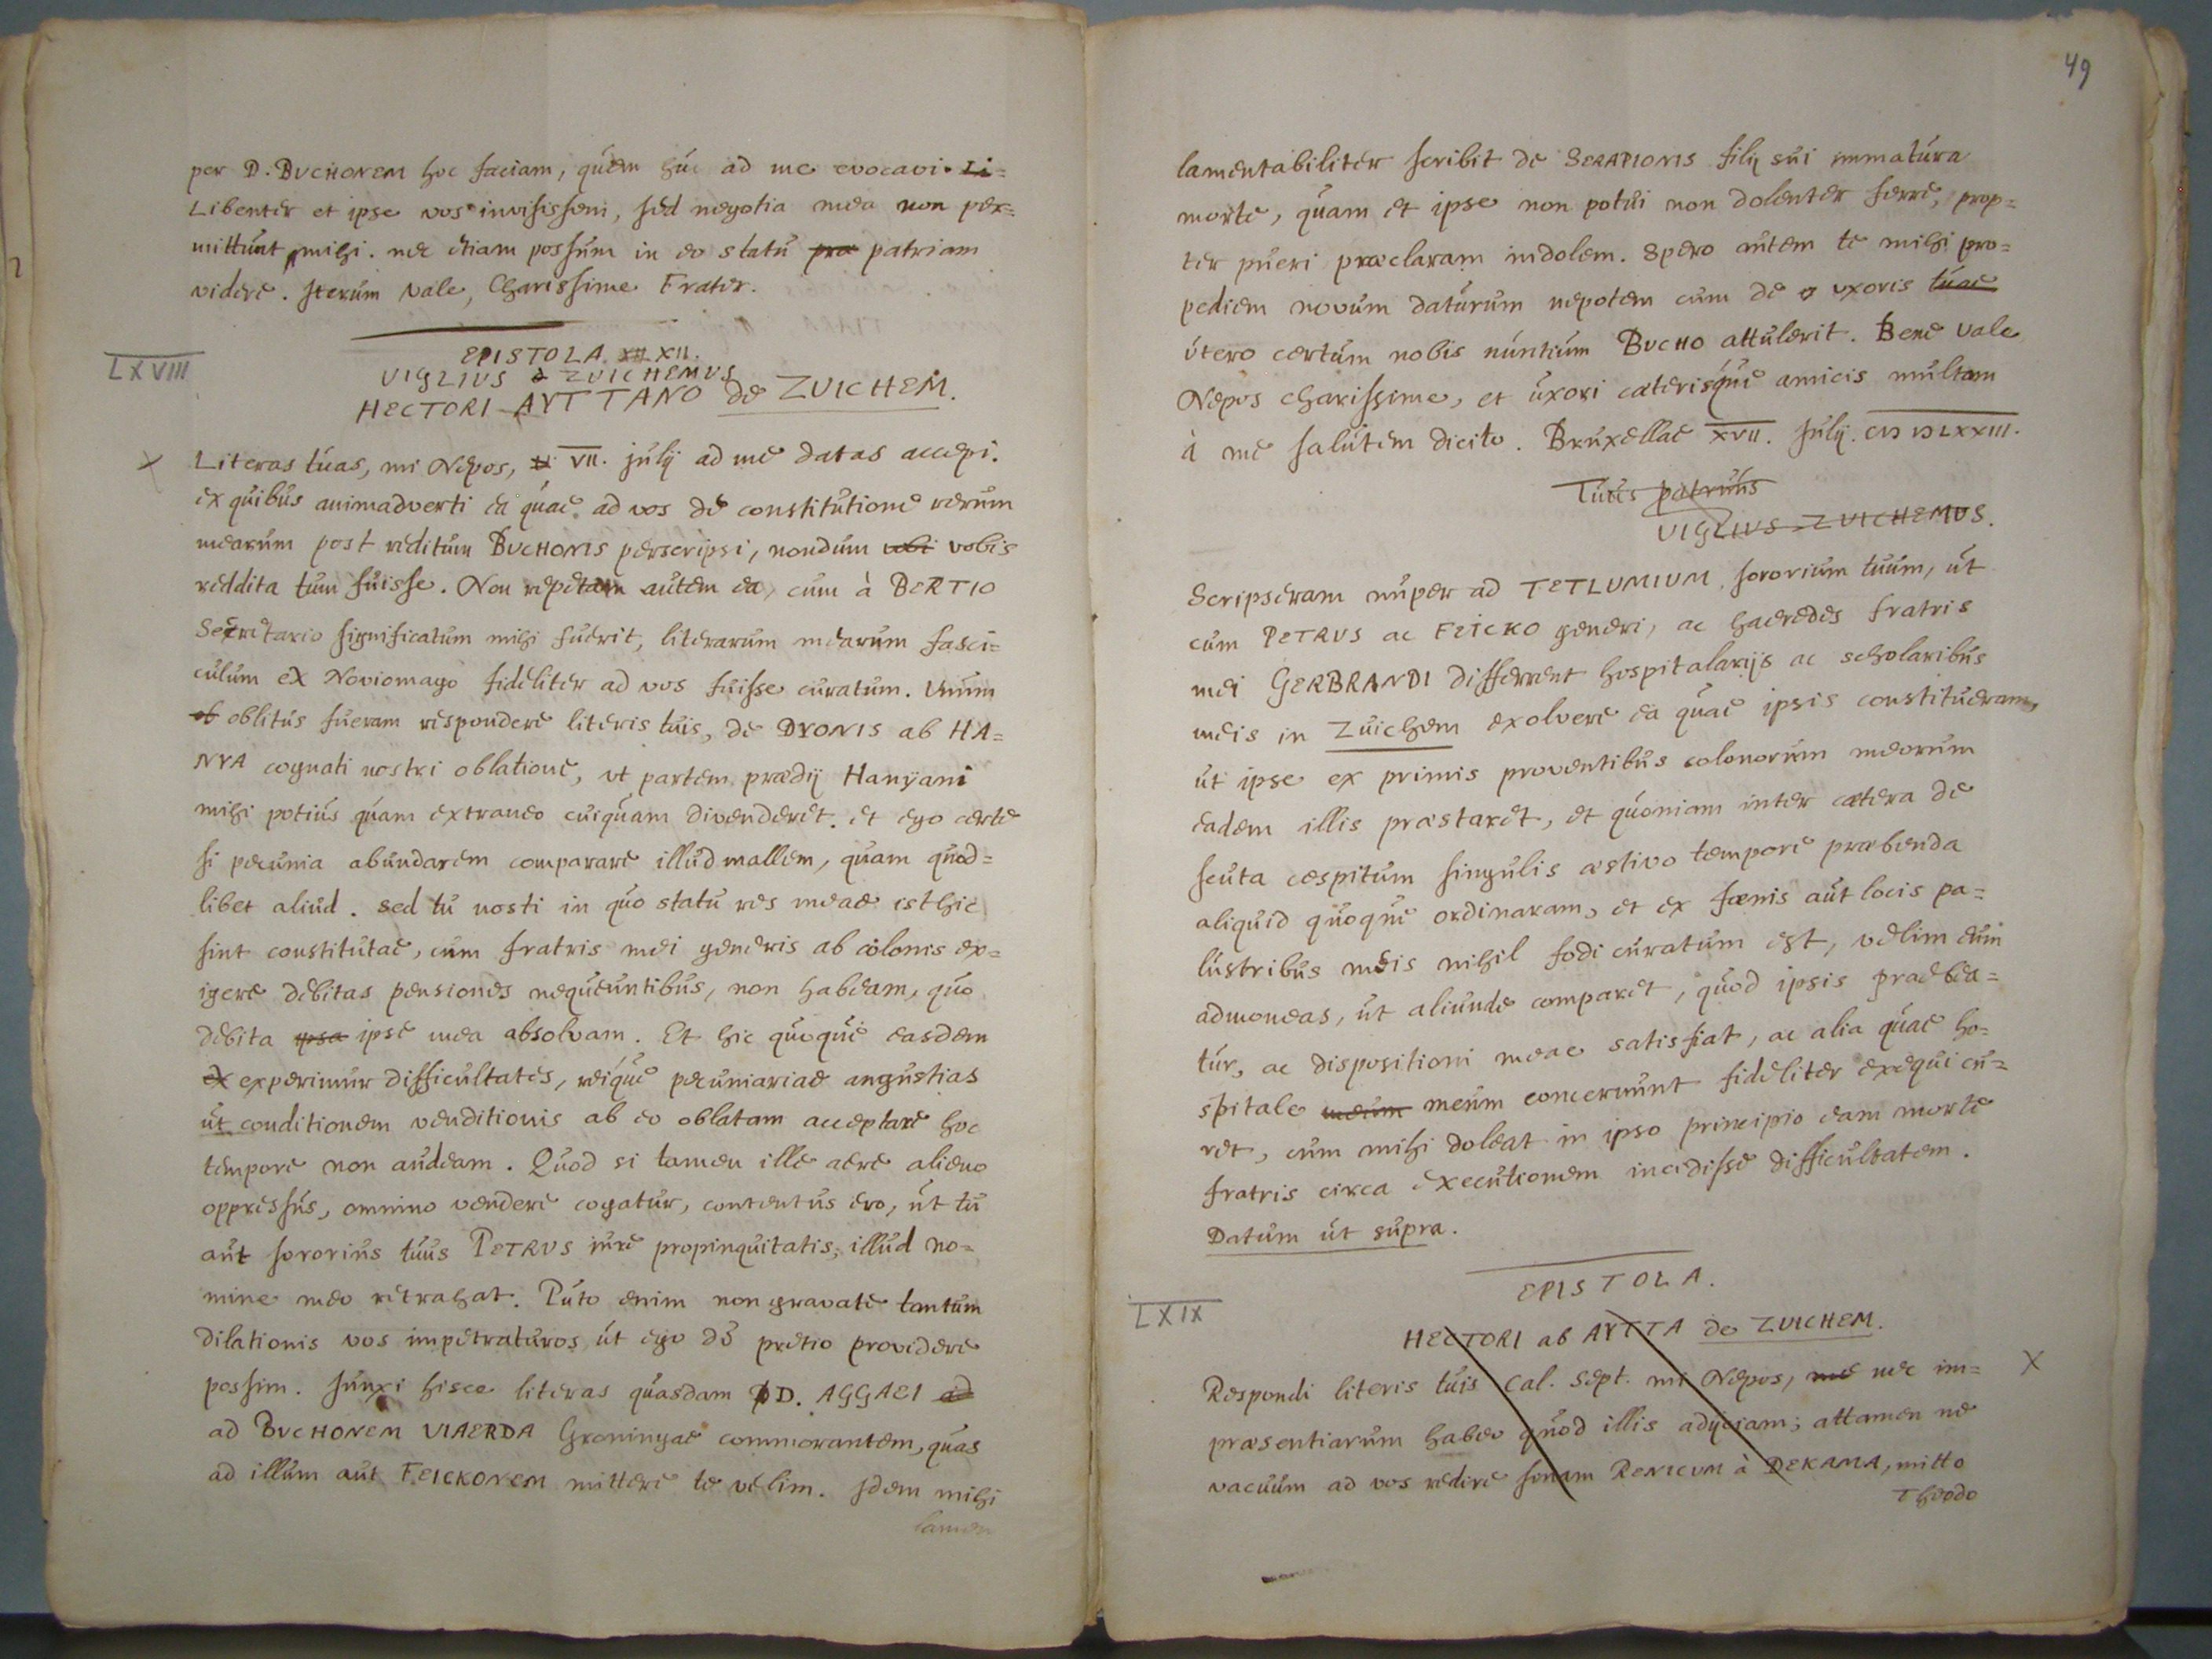 per D. BUCHONEM hoc faciam, quem huc ad me evocavi. Li=
Libenter et ipse vos invisissem, sed negotia mea non per=
mittunt mihi. nec etiam possum in eo statu pra patriam
videre. Iterum vale, Charissime Frater.
LXVIII
EPISTOLA XII XII.
VIGLIUS a ZUICHEMUS
HECTORI AYTTANO de ZUICHEM.
X Literas tuas, mi Nepos, VII. julij ad me datas accepi.
ex quibus animadverti ea quae ad vos de constitutione rerum
mearum post reditum BUCHONIS perscripsi, nondum vobi vobis
reddita tum fuisse. Non repetam autem ea, cum à BERTIO
Secretario significatum mihi fuerit, literarum mearum fasci=
culum ex Noviomago fideliter ad vos fuisse curatum. Unum
ob oblitus fueram respondere literis tuis, de DYONIS ab HA=
NYA cognati nostri oblatione, ut partem prædij Hanÿani
mihi potius quam extraneo cuiquam divenderet. et ego certe
si pecunia abundarem comparare illud mallem, quam quod=
libet aliud. sed tu nosti in quo statu res meae isthic
sint constitutae, cum fratris mei generis ab colonis ex=
igere debitas pensiones nequeuntibus, non habeam, quo
debita ipsa ipse mea absolvam. Et hic quoque easdem
ex experimur difficultates, reique pecuniariae angustias
ut conditionem venditionis ab eo oblatam acceptare hoc
tempore non audeam. Quod si tamen ille aere alieno
oppressus, omnino vendere cogatur, contentus ero, ut tu
aut sororius tuus PETRUS jure propinquitatis, illud no=
mine meo retrahat. Puto enim non gravate tantum
dilationis vos impetraturos ut ego de pretio providere
possim. Junxi hisce literas quasdam D. AGGAEI ad
ad BUCHONEM VIAERDA Groningae commorantem, quas
ad illum aut FEICKONEM mittere te velim. Idem mihi
lamen
49
lamentabiliter scribit de SERAPIONIS filij sui immatura
morte, quam et ipse non potui non dolenter ferre, prop=
ter pueri præclaram indolem. Spero autem te mihi pro=
pediem novum daturum nepotem cum de uxoris tuae
utero certum nobis nuntium BUCHO attulerit. Bene vale
Nepos charissime, et uxori cæterisque amicis multam
à me salutem dicito. Bruxellae XVII. Julij. CIↃ IↃ LXXIII.
Tuus patruus
VIGLIUS ZUICHEMUS.
Scripseram nuper ad TETLUMIUM sororium tuum, ut
cum PETRUS ac FEICKO generi, ac haeredes fratris
mei GERBRANDI differrent hospitalarijs ac scholaribus
meis in Zuichem exolvere ea quae ipsis constitueram,
ut ipse ex primis proventibus colonorum meorum
eadem illis præstaret, et quoniam inter cætera de
scuta cespitum singulis æstivo tempore præbenda
aliquid quoque ordinaram, et ex fænis aut locis pa=
lustribus meis nihil fodi curatum est, velim eum
admoneas, ut aliunde comparet, quod ipsis praebea=
tur, ac dispositioni meae satisfiat, ac alia quae ho=
spitale meum meum concernunt fideliter exequi cu=
ret, cum mihi doleat in ipso principio eam morte
fratris circa executionem incidisse difficultatem.
Datum ut supra.
LXIX
EPISTOLA.
HECTORI ab AYTTA de ZUICHEM.
Respondi literis tuis Cal. Sept. mi Nepos, me nec im= X
præsentiarum habeo quod illis adijciam; attamen ne
vacuum ad vos redire sinam RENICUM à DEKAMA, mitto
Theodo